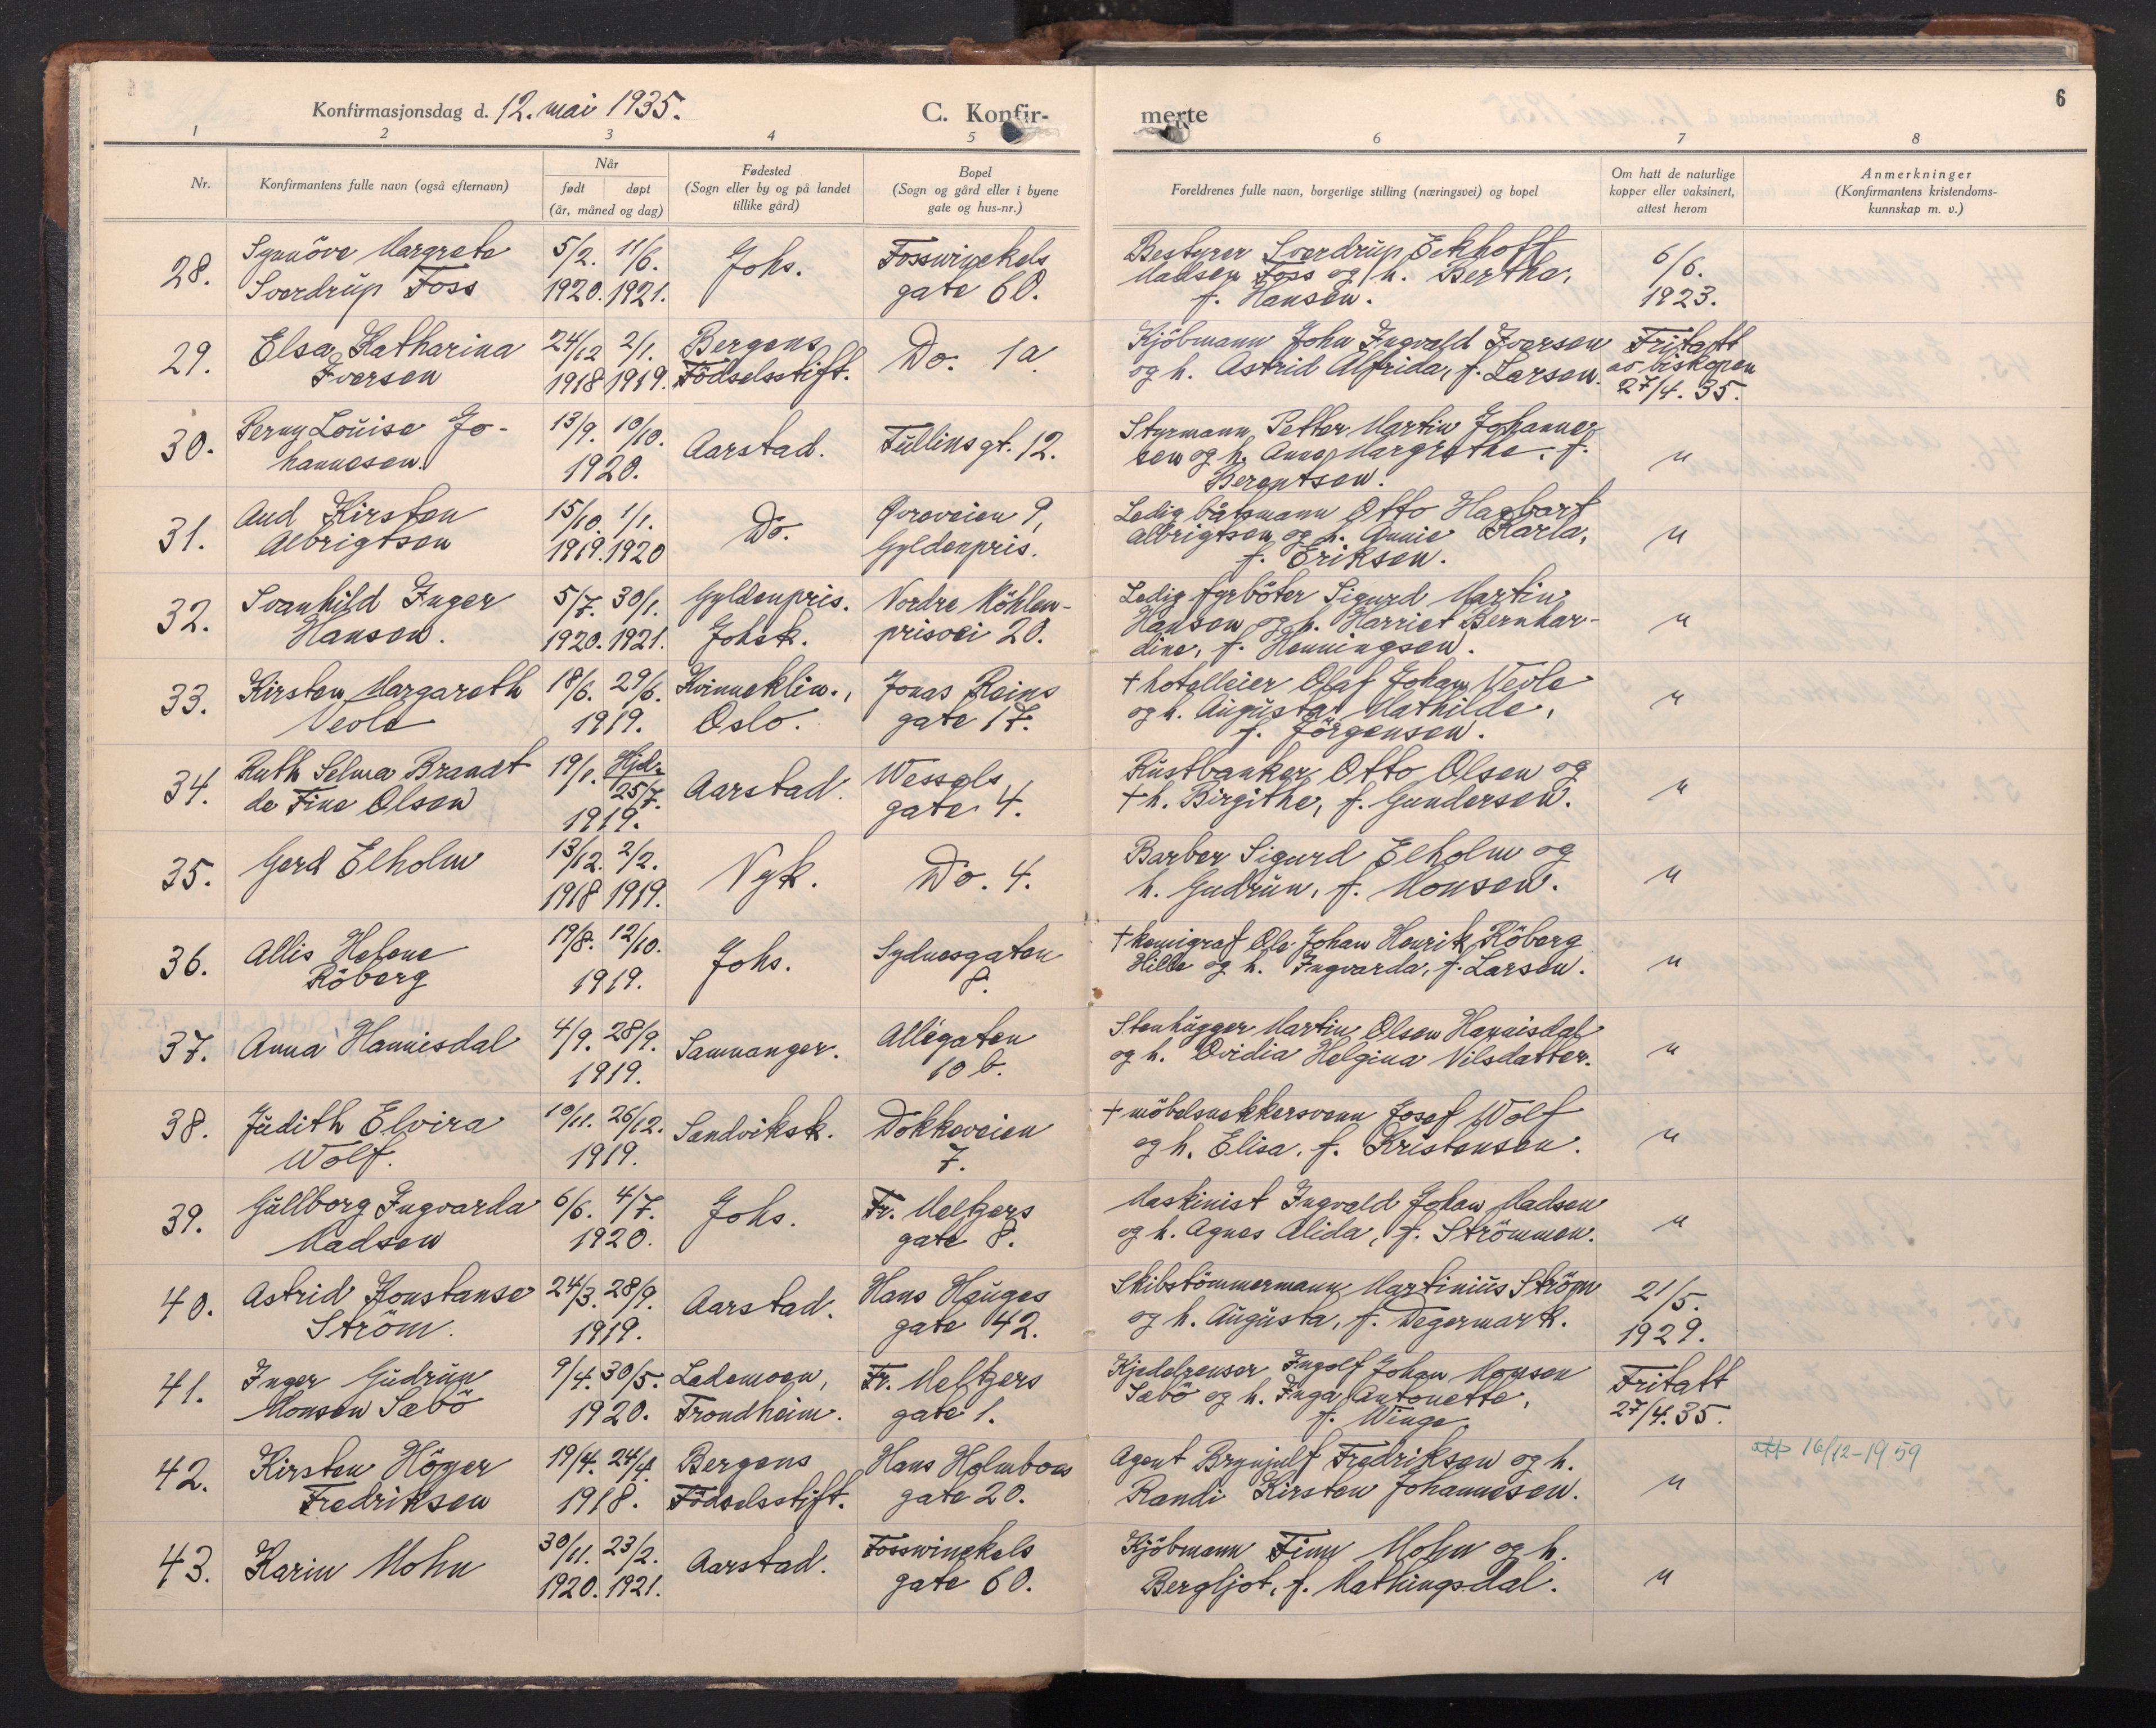 Konfirmasjonsdag d. 12. mai 1935. C. Konfir-
merte 6
1 2 3 4 5 6 7 8
Nr. Konfirmantens fulle navn (også efternavn) Når født døpt (år, måned og dag) Fødested (Sogn eller by og på landet tillike gård) Bopel (Sogn og gård eller i byene gate og hus-nr.) Foreldrenes fulle navn, borgerlige stilling (næringsvei) og bopel Om hatt de naturlige kopper eller vaksinert, attest herom Anmerkninger (Konfirmantens kristendoms-kunnskap m. v.)
28. Synnöve Margrete 5/2. 11/6. Johs. Fosswinckels Bestyrer Sverdrup Eckhoff 6/6.
Sverdrup Foss 1920. 1921. gate 60. Madsen Foss og h. Berthe, 1923.
f. Hansen.
29. Elsa Katharina 24/12 2/1. Bergens Do. 1a. Kjöbmann John Ingvald Iversen Fritatt
Iversen 1918 1919. Födselsstift. og h. Astrid Alfrida, f. Larsen. av biskopen
27/4. 35.
30. Perny Louise Jo- 13/9. 10/10. Aarstad. Tullins gt. 12. Styrmann Petter Martin Johannes-
hannesen. 1920. sen og h. Anna Margrethe, f. "
Berentsen.
31. Aud Kirsten 15/10. 1/1. Do. Qvreveien 9, Ledig båtsmann Otto Hagbart
Albrigtsen 1919. 1920 Gyldenpris. Albrigtsen og h. Annie Karla, "
f. Eriksen.
32. Svanhild Inger 5/7. 30/1. Gyldenpris. Nordre Möhlen- Ledig fyrböter Sigurd Martin
Hansen. 1920. 1921. Johsk. prisvei 20. Hansen og h. Harriet Bernhar- "
dine, f. Henningsen.
33. Kirsten Margareth 18/6. 29/6. Kvinneklin., Jonas Reins † hotelleier Olaf Johan Veole
Veole 1919. Oslo. gate 17. og h. Augusta Mathilde, "
f. Jörgensen.
34. Ruth Selma Brandt 19/1. Hjd. 25/7. Aarstad. Wessels Rustbanker Otto Olsen og
de Fine Olsen 1919. gate 4. † h. Birgithe, f. Gundersen. "
35. Gerd Elholm 13/12. 2/2. Nyk. Do. 4. Barber Sigurd Elholm og
1918 1919. h. Gudrun, f. Monsen. "
36. Allis Helene 19/8. 12/10. Johs. Sydnesgaten † kemigraf Ole Johan Henrik Röberg
Röberg 1919. 8. Hille og h. Ingvarda, f. Larsen. "
37. Anna Hannisdal 4/9. 28/9. Samnanger. Allégaten Stenhugger Martin Olsen Hannisdal
1919. 10 b. og h. Ovidia Helgina Nilsdatter. "
38. Judith Elvira 10/11. 26/12. Sandviksk. Dokkeveien † möbelsnekkersvenn Josef Wolf
Wolf. 1919. 7. og h. Elisa, f. Kristensen. "
39. Gullborg Ingvarda 6/6. 4/7. Johs. Fr. Meltzers Maskinist Ingvald Johan Madsen
Madsen 1920. gate 8. og h. Agnes Alida, f. Strömmen. "
40. Astrid Konstanse 24/3. 28/9. Aarstad. Hans Hauges Skibstömmermann Martinius Ström 21/5.
Ström. 1919. gate 42. og h. Augusta, f. Degermark. 1929.
41. Inger Gudrun 9/4. 30/5. Lademoen, Fr. Meltzers Kjedelrenser Ingolf Johan Monsen Fritatt
Monsen Sæbö 1920. Trondheim. gate 1. Sæbö og h. Inga Antonette, 27/4. 35.
f. Winge.
42. Kirsten Höyer 19/4. 24/4. Bergens Hans Holmboes Agent Brynjulf Fredriksen og h. 16/12-1959
Fredriksen 1918. Födselsstift. gate 20. Randi Kirsten Johannesen. "
43. Karin Mohn 30/11. 23/2. Aarstad. Fosswinckels Kjöbmann Finn Mohn og h.
1920. 1921. gate 60. Bergljot, f. Mathingsdal. "